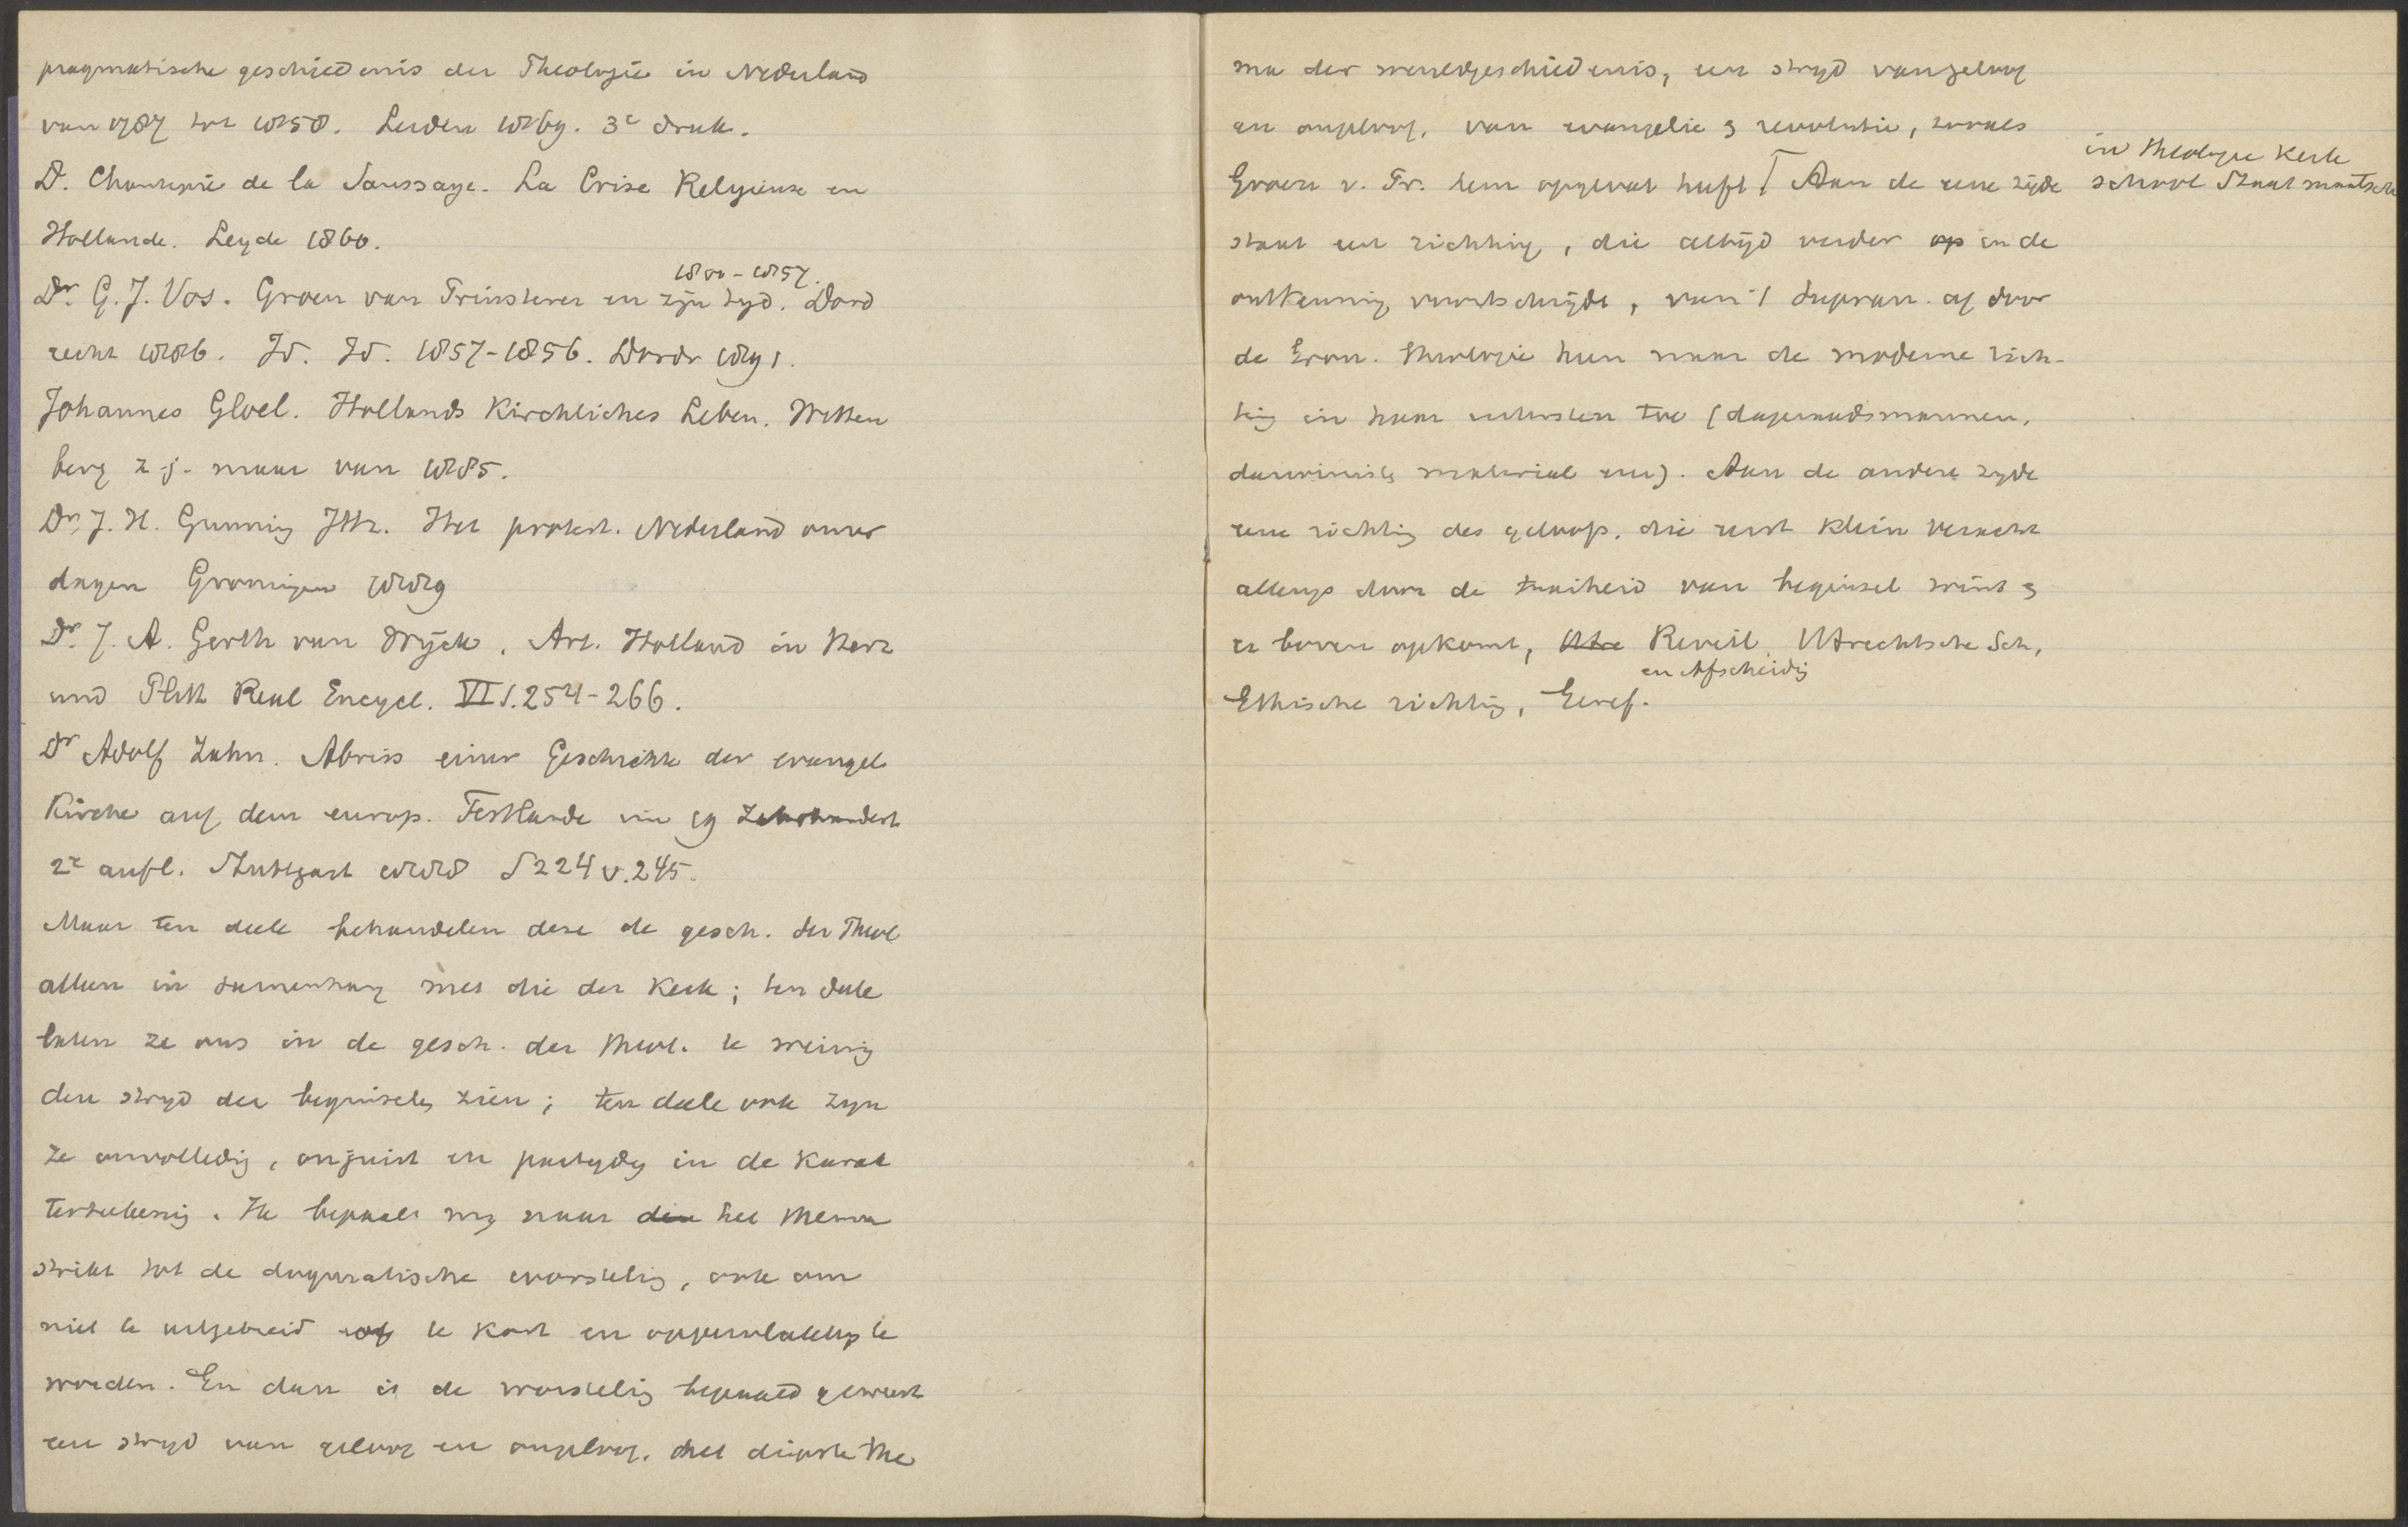 pragmatische geschiedenis der Theologie in Nederland
van 1787 tot 1858. Leiden 1869. 3e druk.
D. Chantepie de la Saussaye. La Crise Religieuse en
Hollande. Leyde 1860.
1800-1857.
Dr. G. J. Vos. Groen van Prinsterer en zijn tyd. Dord
recht 1886. Id. Id. 1857-1856. Dordr 1891.
Johannes Gloel. Hollands Kirchliches Leben. Witten
berg z.j. maar van 1885.
Dr. J. H. Gunning JHz. Het protest. Nederland onzer
dagen Groningen 1889
Dr. J. A. Gerth van Wyck. Art. Holland in Herz
und Plitt Real Encycl. VI S. 254-266.
Dr Adolf Zahn. Abriss einer Geschichte der evangel
Kirche auf dem europ. Festlande im 19 Jahrhundert
2e aufl. Stuttgart 1888 S 224 v. 245.
Maar ten deele behandelen deze de gesch. der Theol
alleen in samenhang met die der Kerk; ten deele
laten ze ons in de gesch. der theol. te weinig
den stryd der beginselen zien; ten deele ook zyn
ze onvolledig, onjuist en partydig in de karak
terteekening. Ik bepaal my naar den het thema
strikt tot de dogmatische worsteling, ook om
niet te uitgebreid of te kort en oppervlakkig te
worden. En dan is de worsteling bepaald geweest
een stryd van geloof en ongeloof. het diepste the
ma der wereldgeschiedenis, een stryd van geloof
en ongeloof, van evangelie & revolutie, zooals
in theologie Kerk
Groen v. Pr. hem opgevat heeft Aan de eene zijde school Staat maatsch
staat een richting, die altijd verder op in de
ontkenning voortschrijdt, van 't supran. af door
de Gron. theologie heen naar de moderne rich-
ting in haar uitersten toe (dageraadsmannen,
darwinisten material en). Aan de andere zyde
eene richting des geloofs, die eerst klein veracht
allengs door de vastheid van beginsel wint &
er boven opkomt, Utre Reveil, Utrechtsche Sch,
en Afscheidig
Ethische richting, Geref.